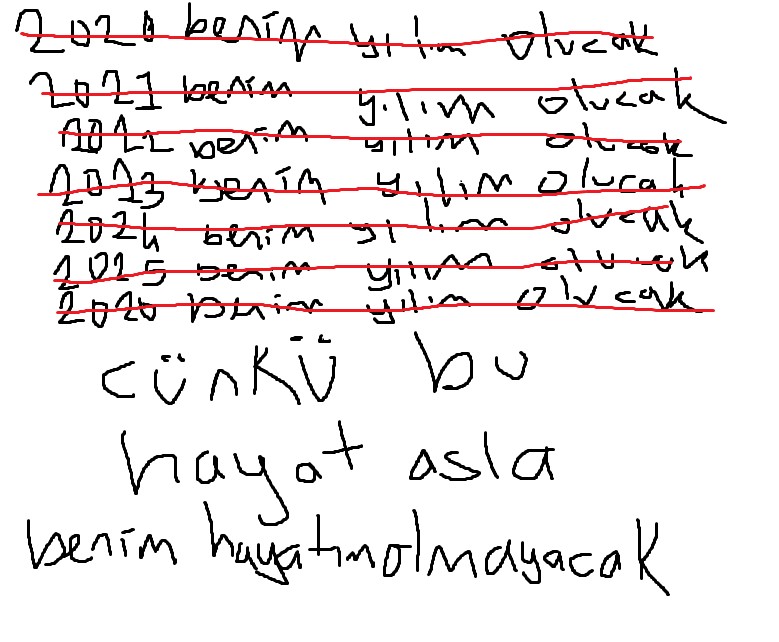 2020 benim yılım olucak
2021 benim yılım olucak
2022 benim yılım olucak
2023 benim yılım olucak
2024 benim yılım olucak
2025 benim yılım olucak
2026 benim yılım olucak
cünkü bu
hayat asla
benim hayatım olmayacak